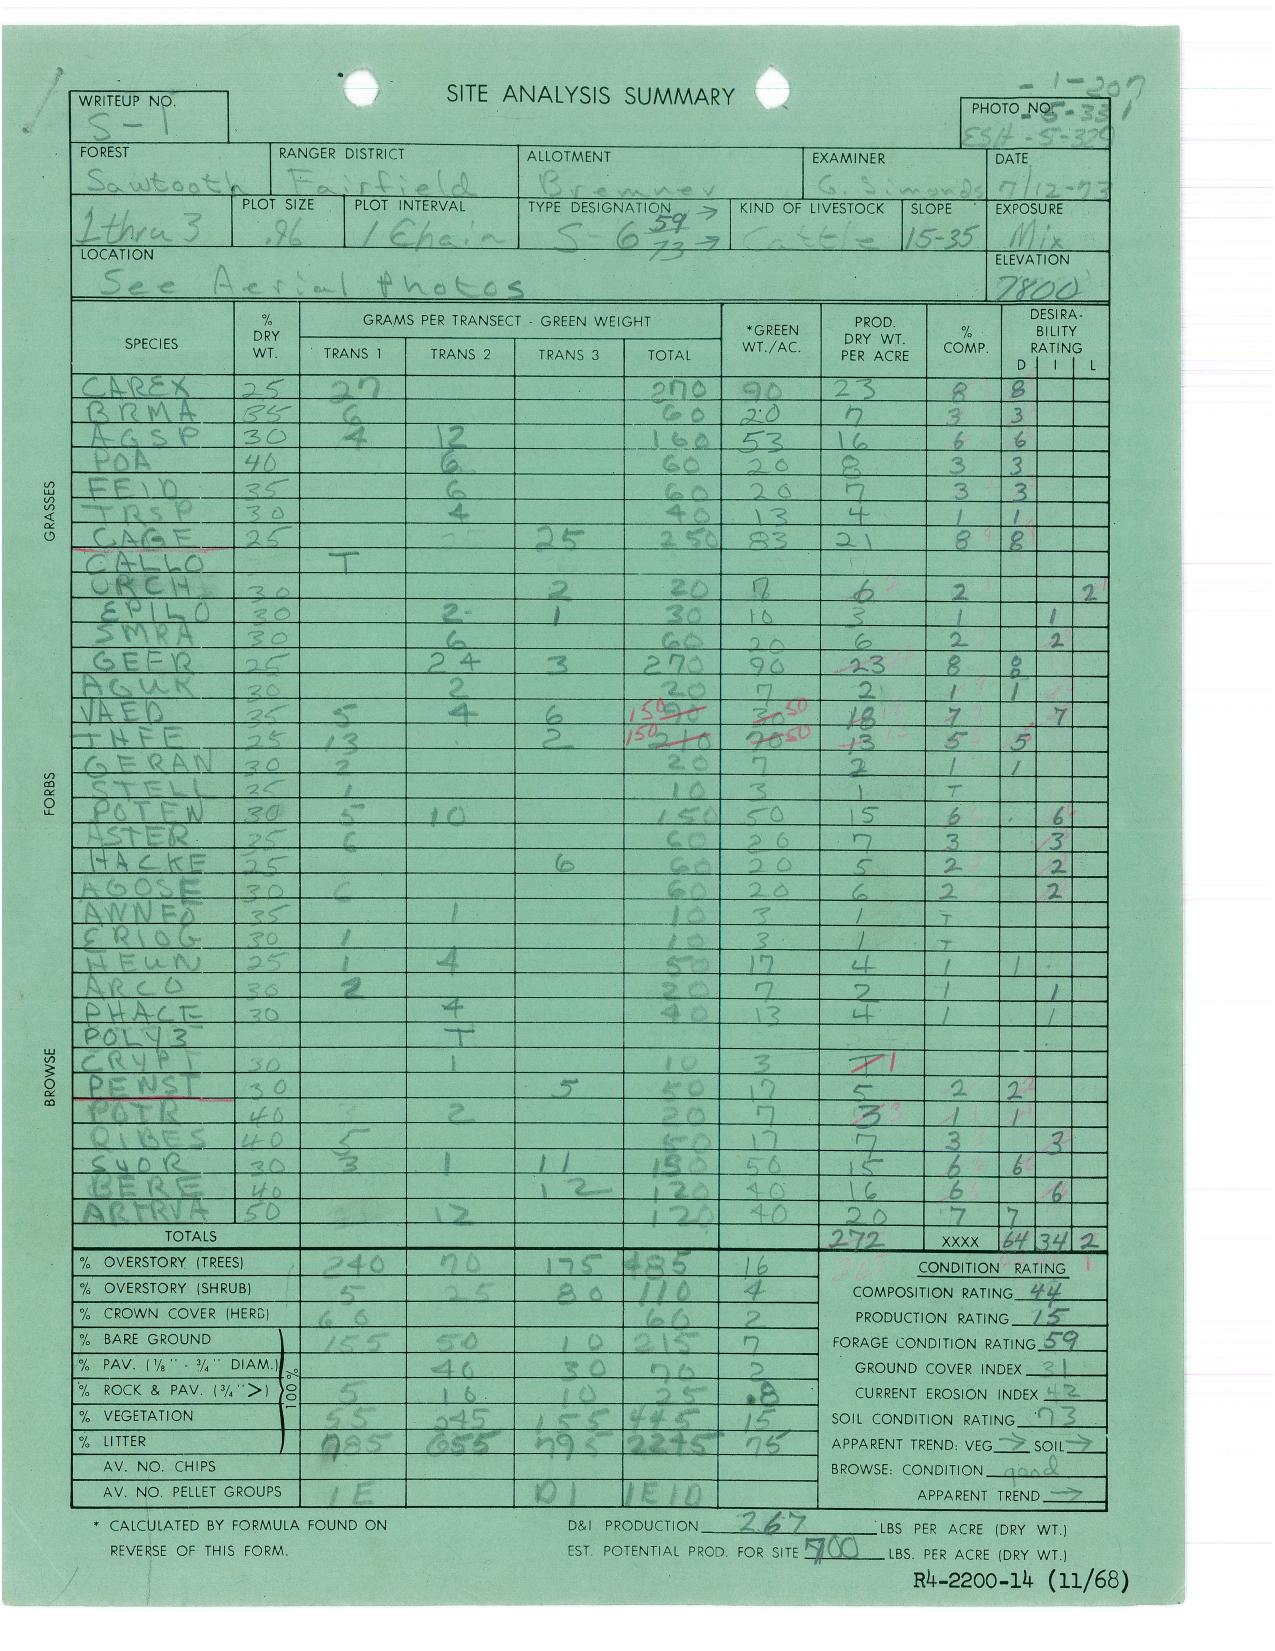 - 1 - 207
SITE ANALYSIS SUMMARY
WRITEUP NO. S-1
PHOTO NO. - 5 - 331
ESH - 5-329
FOREST RANGER DISTRICT ALLOTMENT EXAMINER DATE
Sawtooth Fairfield Bremner G. Simonds 7/12-73
1 thru 3 PLOT SIZE .96 PLOT INTERVAL 1 Chain TYPE DESIGNATION S-6 59 → 73 → KIND OF LIVESTOCK Cattle SLOPE 15-35 EXPOSURE Mix
LOCATION See Aerial Photos ELEVATION 7800'
SPECIES % DRY WT. GRAMS PER TRANSECT - GREEN WEIGHT *GREEN WT./AC. PROD. DRY WT. PER ACRE % COMP. DESIRA- BILITY RATING
TRANS 1 TRANS 2 TRANS 3 TOTAL D I L
GRASSES
CAREX 25 27 270 90 23 8 8
BRMA 35 6 60 20 7 3 3
AGSP 30 4 12 160 53 16 6 6
POA 40 6 60 20 8 3 3
FEID 35 6 60 20 7 3 3
TRSP 30 4 40 13 4 1 1
CAGE 25 25 250 83 21 8 8
FORBS
CALLO T
URCH 30 2 20 7 6 2 2
EPILO 30 2 1 30 10 3 1 1
SMRA 30 6 60 20 6 2 2
GEER 25 24 3 270 90 23 8 8
AGUR 30 2 20 7 2 1 1
VAED 35 5 4 6 150 50 18 7 7
THFE 25 13 2 150 210 70 50 13 5 5
GERAN 30 2 20 7 2 1 1
STELL 25 1 10 3 1 T
POTEN 30 5 10 150 50 15 6 6
ASTER 35 6 60 20 7 3 3
HACKE 25 6 60 20 5 2 2
AGOSE 30 6 60 20 6 2 2
ANNFO 35 1 10 3 1 T
ERIOG 30 1 10 3 1 T
HEUN 25 1 4 50 17 4 1 1
ARCO 30 2 20 7 2 1 1
PHACE 30 4 40 13 4 1 1
POLY3 T
CRYPT 30 1 10 3 T 1
PENST 30 5 50 17 5 2 2
BROWSE
POTR 40 2 20 7 3 1 1
RIBES 40 5 50 17 7 3 3
SYOR 30 3 1 11 150 50 15 6 6
BERE 40 12 120 40 16 6 6
ARTRVA 50 12 120 40 20 7 7
TOTALS 272 XXXX 64 34 2
% OVERSTORY (TREES) 240 70 175 485 16
% OVERSTORY (SHRUB) 5 25 80 110 4
% CROWN COVER (HERB) 60 60 2
% BARE GROUND 155 50 10 215 7
% PAV. (1/8" - 3/4" DIAM.) 40 30 70 2
% ROCK & PAV. (3/4" >) 5 10 10 25 .8
% VEGETATION 55 245 155 445 15
% LITTER 785 655 795 2245 75
100%
AV. NO. CHIPS
AV. NO. PELLET GROUPS 1E D1 1E1D
CONDITION RATING
COMPOSITION RATING 44
PRODUCTION RATING 15
FORAGE CONDITION RATING 59
GROUND COVER INDEX 31
CURRENT EROSION INDEX 42
SOIL CONDITION RATING 73
APPARENT TREND: VEG → SOIL →
BROWSE: CONDITION good
APPARENT TREND →
* CALCULATED BY FORMULA FOUND ON
REVERSE OF THIS FORM.
D&I PRODUCTION 267 LBS PER ACRE (DRY WT.)
EST. POTENTIAL PROD. FOR SITE 700 LBS. PER ACRE (DRY WT.)
R4-2200-14 (11/68)